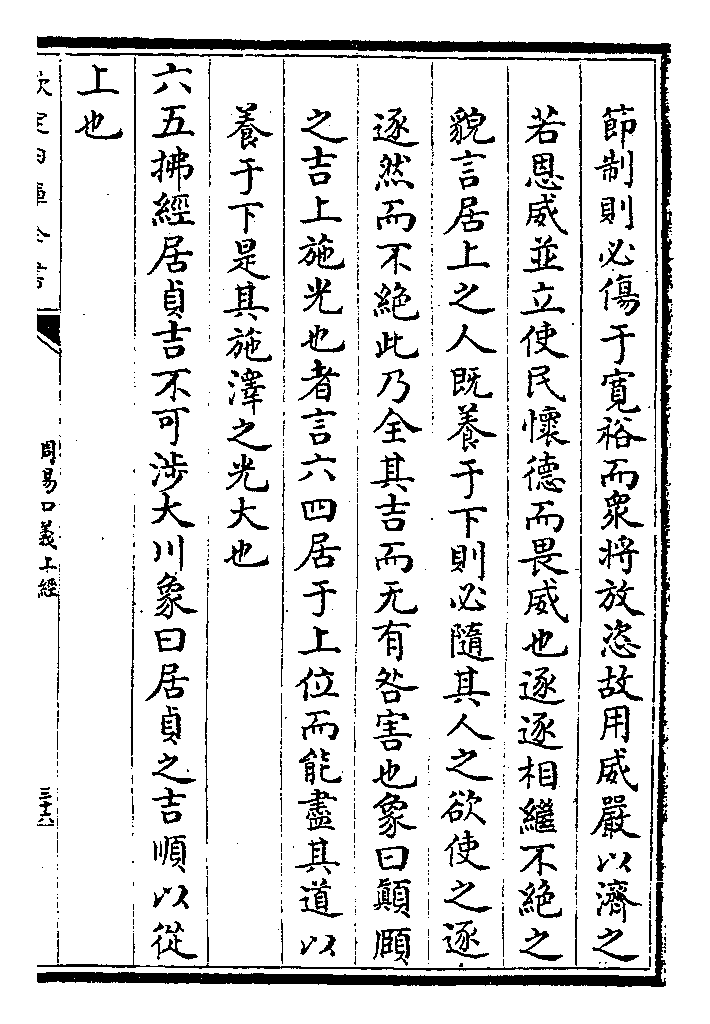 節制則必傷于寛裕而衆將放恣故用威嚴以濟之
若恩威並立使民懷德而畏威也逐逐相繼不絶之
貌言居上之人既養于下則必隨其人之欲使之逐
逐然而不絶此乃全其吉而无有咎害也象曰顚頤
之吉上施光也者言六四居于上位而能盡其道以
養于下是其施澤之光大也
六五拂經居貞吉不可涉大川象曰居貞之吉順以從
上也
欽定四庫全書
周易口義上經
三十六